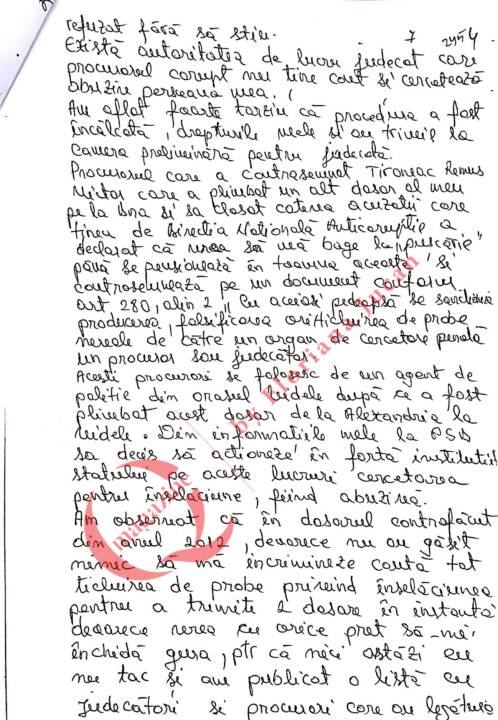 refuzat fără să știu.
7 2954
Există autoritatea de lucru judecat care
procurorul corupt nu ține cont și cercetează
abuziv persoana mea.
Am aflat foarte tarziu că procedura a fost
încălcată, drepturile mele și au trimis la
Camera preliminară pentru judecată.
Procurorul care a contrasemnat Tironeac Remus
Nictor care a plimbat un alt dosar al meu
pe la Bna și sa clasat cateva acuzatii care
țineu de Directia Natională Anticoruptie a
declarat că vrea să mă bage la "pușcărie"
până se pensionează în toamna aceasta și
contrasemnează pe un document conform
art. 280, alin 2 "Cu aceiasi pedeapsă se sanctionează
producerea, falsificarea ori ticluirea de probe
nereale de către un organ de cercetare penală
un procuror sau judecător
Acești procurori se folosesc de un agent de
politie din orasul Videle după ce a fost
plimbat acest dosar de la Alexandria la
Videle. Din informatiile mele la PSD
sa decis să actioneze în forță institutii
statului pe aceste lucruri cercetarea
pentru înselăciune, fiind abuzivă.
Am observat că în dosarul contrafăcut
din anul 2012, deoarece nu au găsit
nimic să mă incrimineze caută tot
ticluirea de probe privind înselăciunea
pentru a trimite 2 dosare în instantă
deoarece vrea cu orice pret să-mi
închidă gura, ptr că nici astăzi eu
nu tac și am publicat o listă cu
judecători și procurori care au legătură
magazine by Floriana Jucan